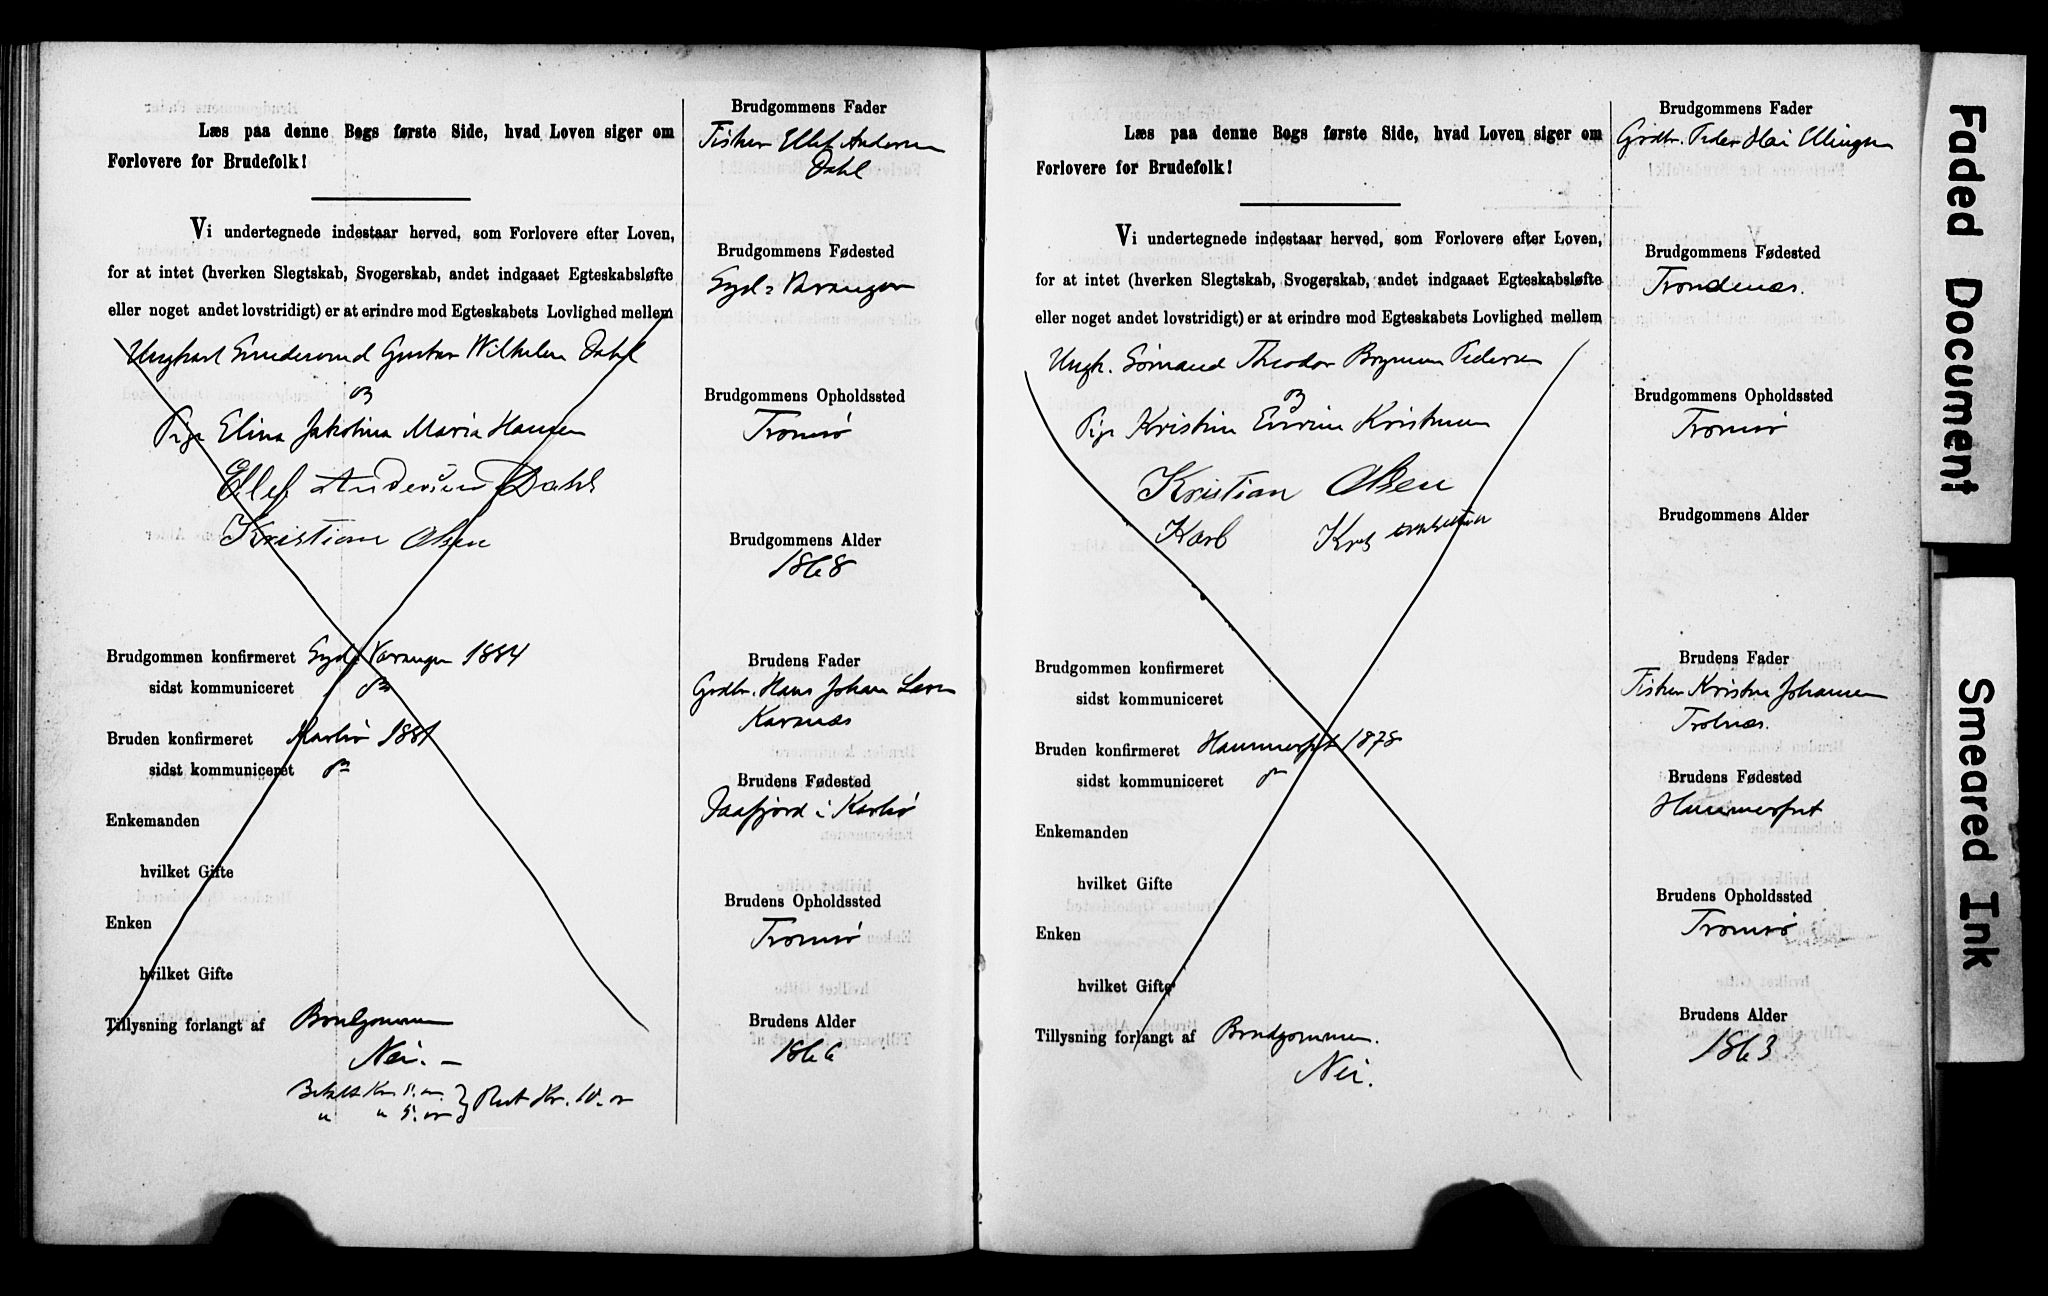 Læs paa denne Bogs første Side, hvad Loven siger om
Forlovere for Brudefolk!
Vi undertegnede indestaar herved, som Forlovere efter Loven,
for at intet (hverken Slegtskab, Svogerskab, andet indgaaet Egteskabsløfte
eller noget andet lovstridigt) er at erindre mod Egteskabets Lovlighed mellem
Ungkarl Gustav Wilhelm Dahl
Pige Elina Jakobina Maria Hansen
Ellef Andersen Dahl
Kristian Olsen
Brudgommen konfirmeret Syd-Varanger 1884
sidst kommuniceret
Bruden konfirmeret Karlsø 1881
sidst kommuniceret
Enkemanden
hvilket Gifte
Enken
hvilket Gifte
Tillysning forlangt af Brudgommen
Nei. –
Betalt Kr.
" " 5.
Rest Kr. 10.
Brudgommens Fader
Fisker Ellef Andersen
Dahl
Brudgommens Fødested
Syd-Varanger
Brudgommens Opholdssted
Tromsø
Brudgommens Alder
1868
Brudens Fader
Grdbr. Hans Johan Larsen
Brudens Fødested
Daafjord i Karlsø
Brudens Opholdssted
Tromsø
Brudens Alder
1866
Læs paa denne Bogs første Side, hvad Loven siger om
Forlovere for Brudefolk!
Vi undertegnede indestaar herved, som Forlovere efter Loven,
for at intet (hverken Slegtskab, Svogerskab, andet indgaaet Egteskabsløfte
eller noget andet lovstridigt) er at erindre mod Egteskabets Lovlighed mellem
Ungk. Sømand Theodor Pedersen
Pige Kristine Kristensen
Kristian Olsen
Karl
Brudgommen konfirmeret
sidst kommuniceret
Bruden konfirmeret Hammerfest 1878
sidst kommuniceret
Enkemanden
hvilket Gifte
Enken
hvilket Gifte
Tillysning forlangt af Brudgommen.
Nei.
Brudgommens Fader
Grdbr. Peder Ellingsen
Brudgommens Fødested
Trondenæs.
Brudgommens Opholdssted
Tromsø
Brudgommens Alder
Brudens Fader
Fisker Kristen Johansen
Brudens Fødested
Hammerfest
Brudens Opholdssted
Tromsø
Brudens Alder
1863
Faded Document
Smeared Ink